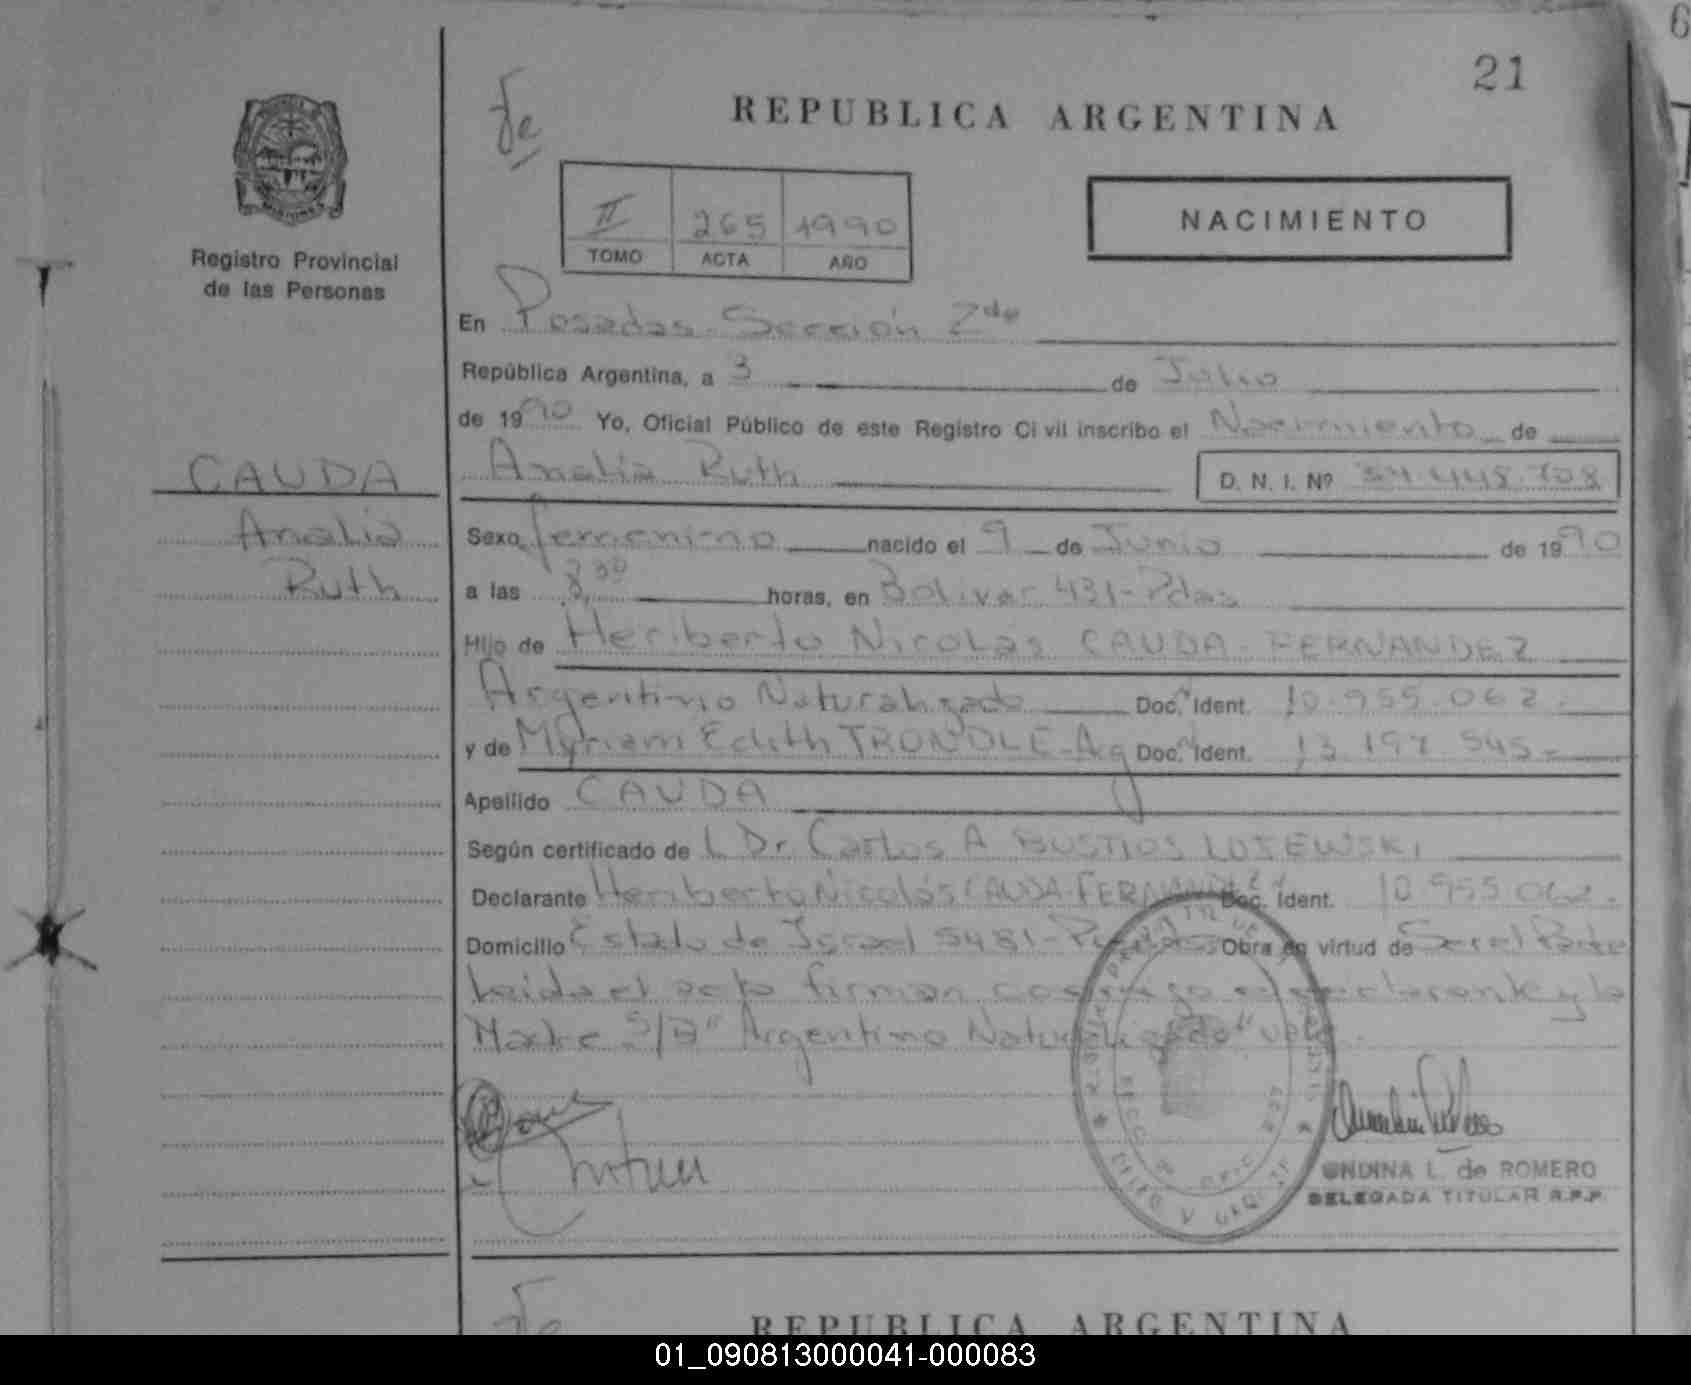 21
REPUBLICA ARGENTINA
II 265 1990
TOMO ACTA AÑO
NACIMIENTO
Registro Provincial
de las Personas
En Posadas Sección 2da
República Argentina, a 3 de Julio
de 1990 Yo, Oficial Público de este Registro Civil inscribo el Nacimiento de
CAUDA
Analia Ruth D. N. I. Nº 34.448.708
Analia
Ruth
Sexo femenino nacido el 9 de Junio de 1990
a las 8,00 horas, en Bolivar 431-Pdas
Hijo de Heriberto Nicolas CAUDA-FERNANDEZ
Argentino Naturalizado Doc. Ident. 10.955.062.
y de Myriam Edith TRONDLE-Ag Doc. Ident. 13.197.545-
Apellido CAUDA
Según certificado de L Dr. Carlos A BUSTIOS
Declarante Heriberto Nicolás CAUDA-FERNANDEZ Doc. Ident. 10.955.062.
Domicilio Estado de Israel 5431- Obra en virtud de Ser el Padre
Leida el acta firman conmigo el declarante y la
Madre S/B "Argentino Naturalizado" vale.
ONDINA L. de ROMERO
DELEGADA TITULAR R.P.P.
REPUBLICA ARGENTINA
01_090813000041-000083